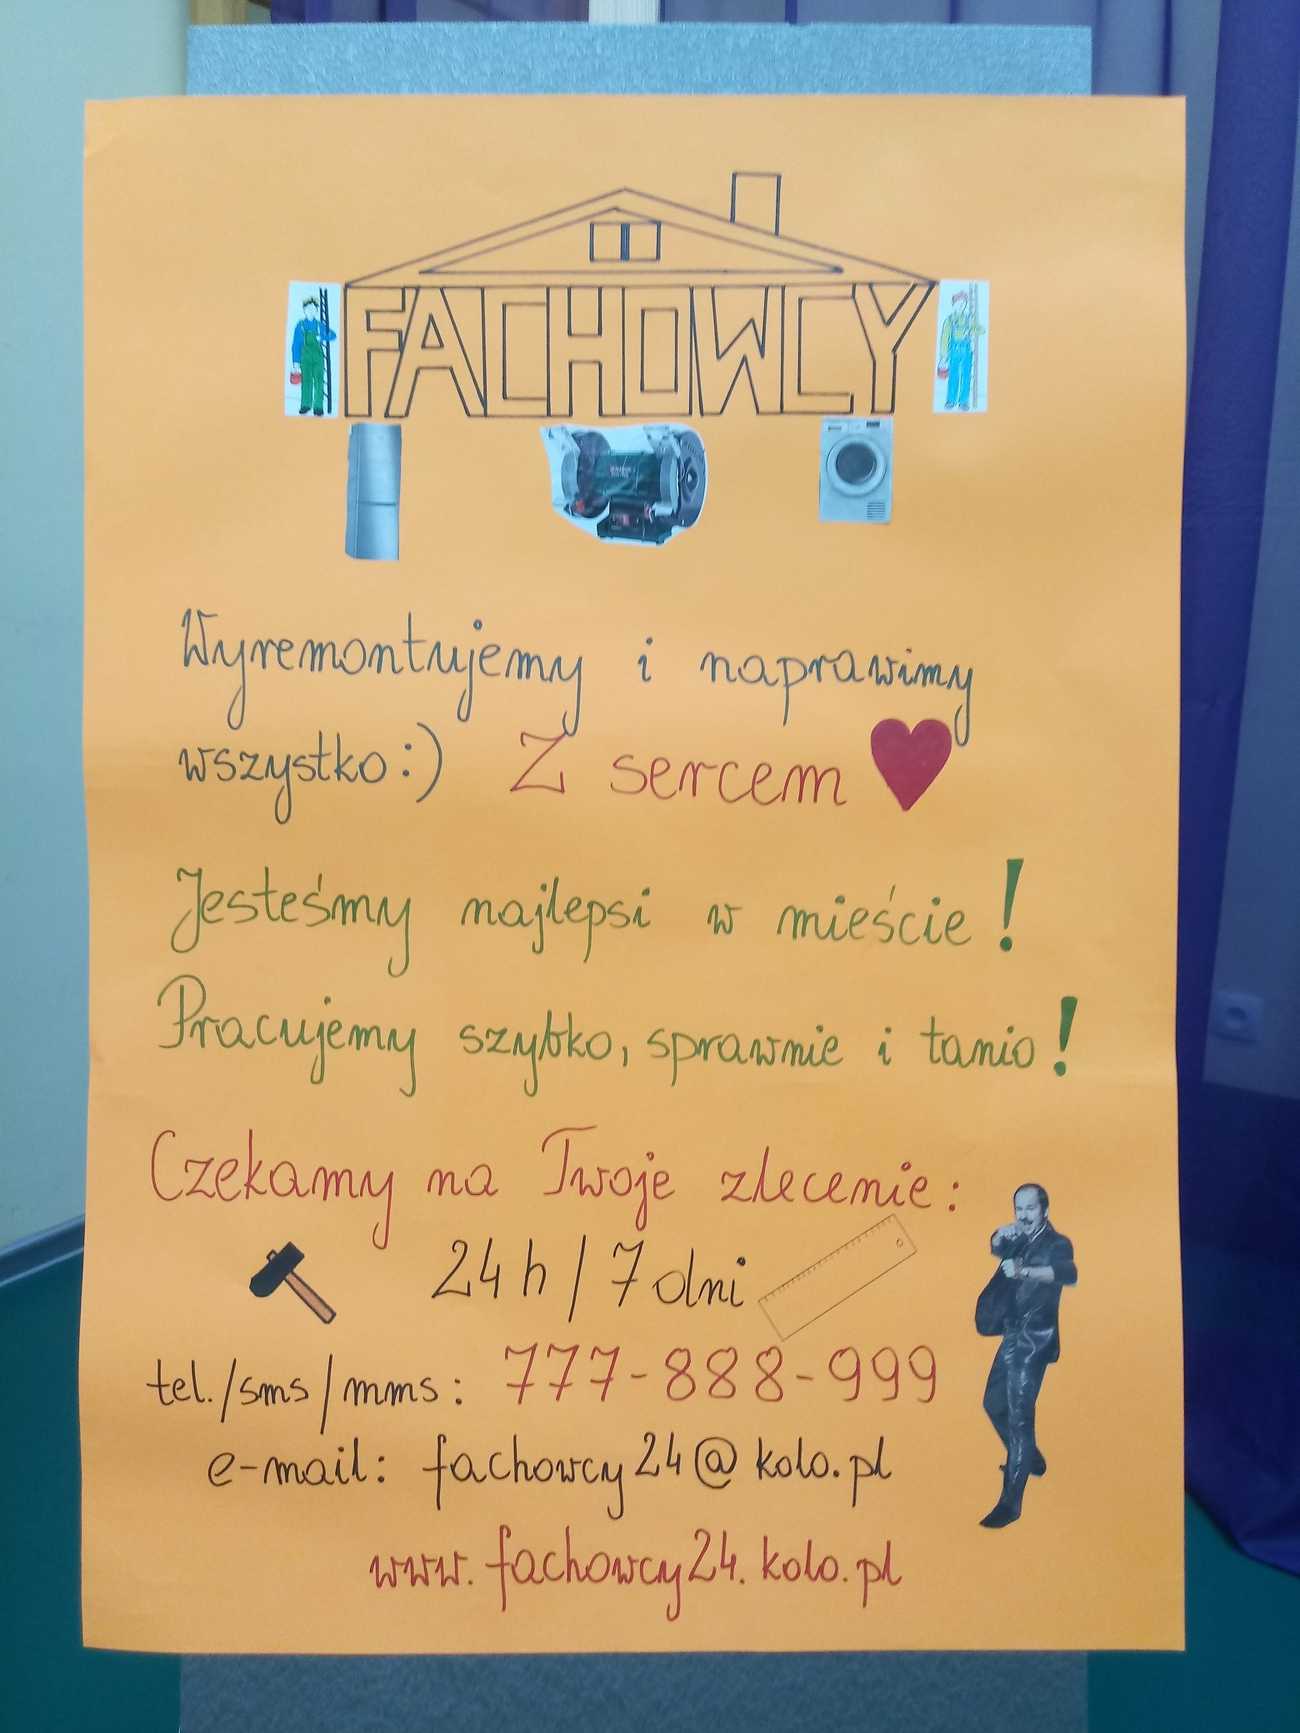 FACHOWCY
Wyremontujemy i naprawimy
wszystko:) Z sercem
Jesteśmy najlepsi w mieście!
Pracujemy szybko, sprawnie i tanio!
Czekamy na Twoje zlecenie:
24h/7dni
tel./sms/mms: 777-888-999
e-mail: fachowcy24@kolo.pl
www.fachowcy24.kolo.pl